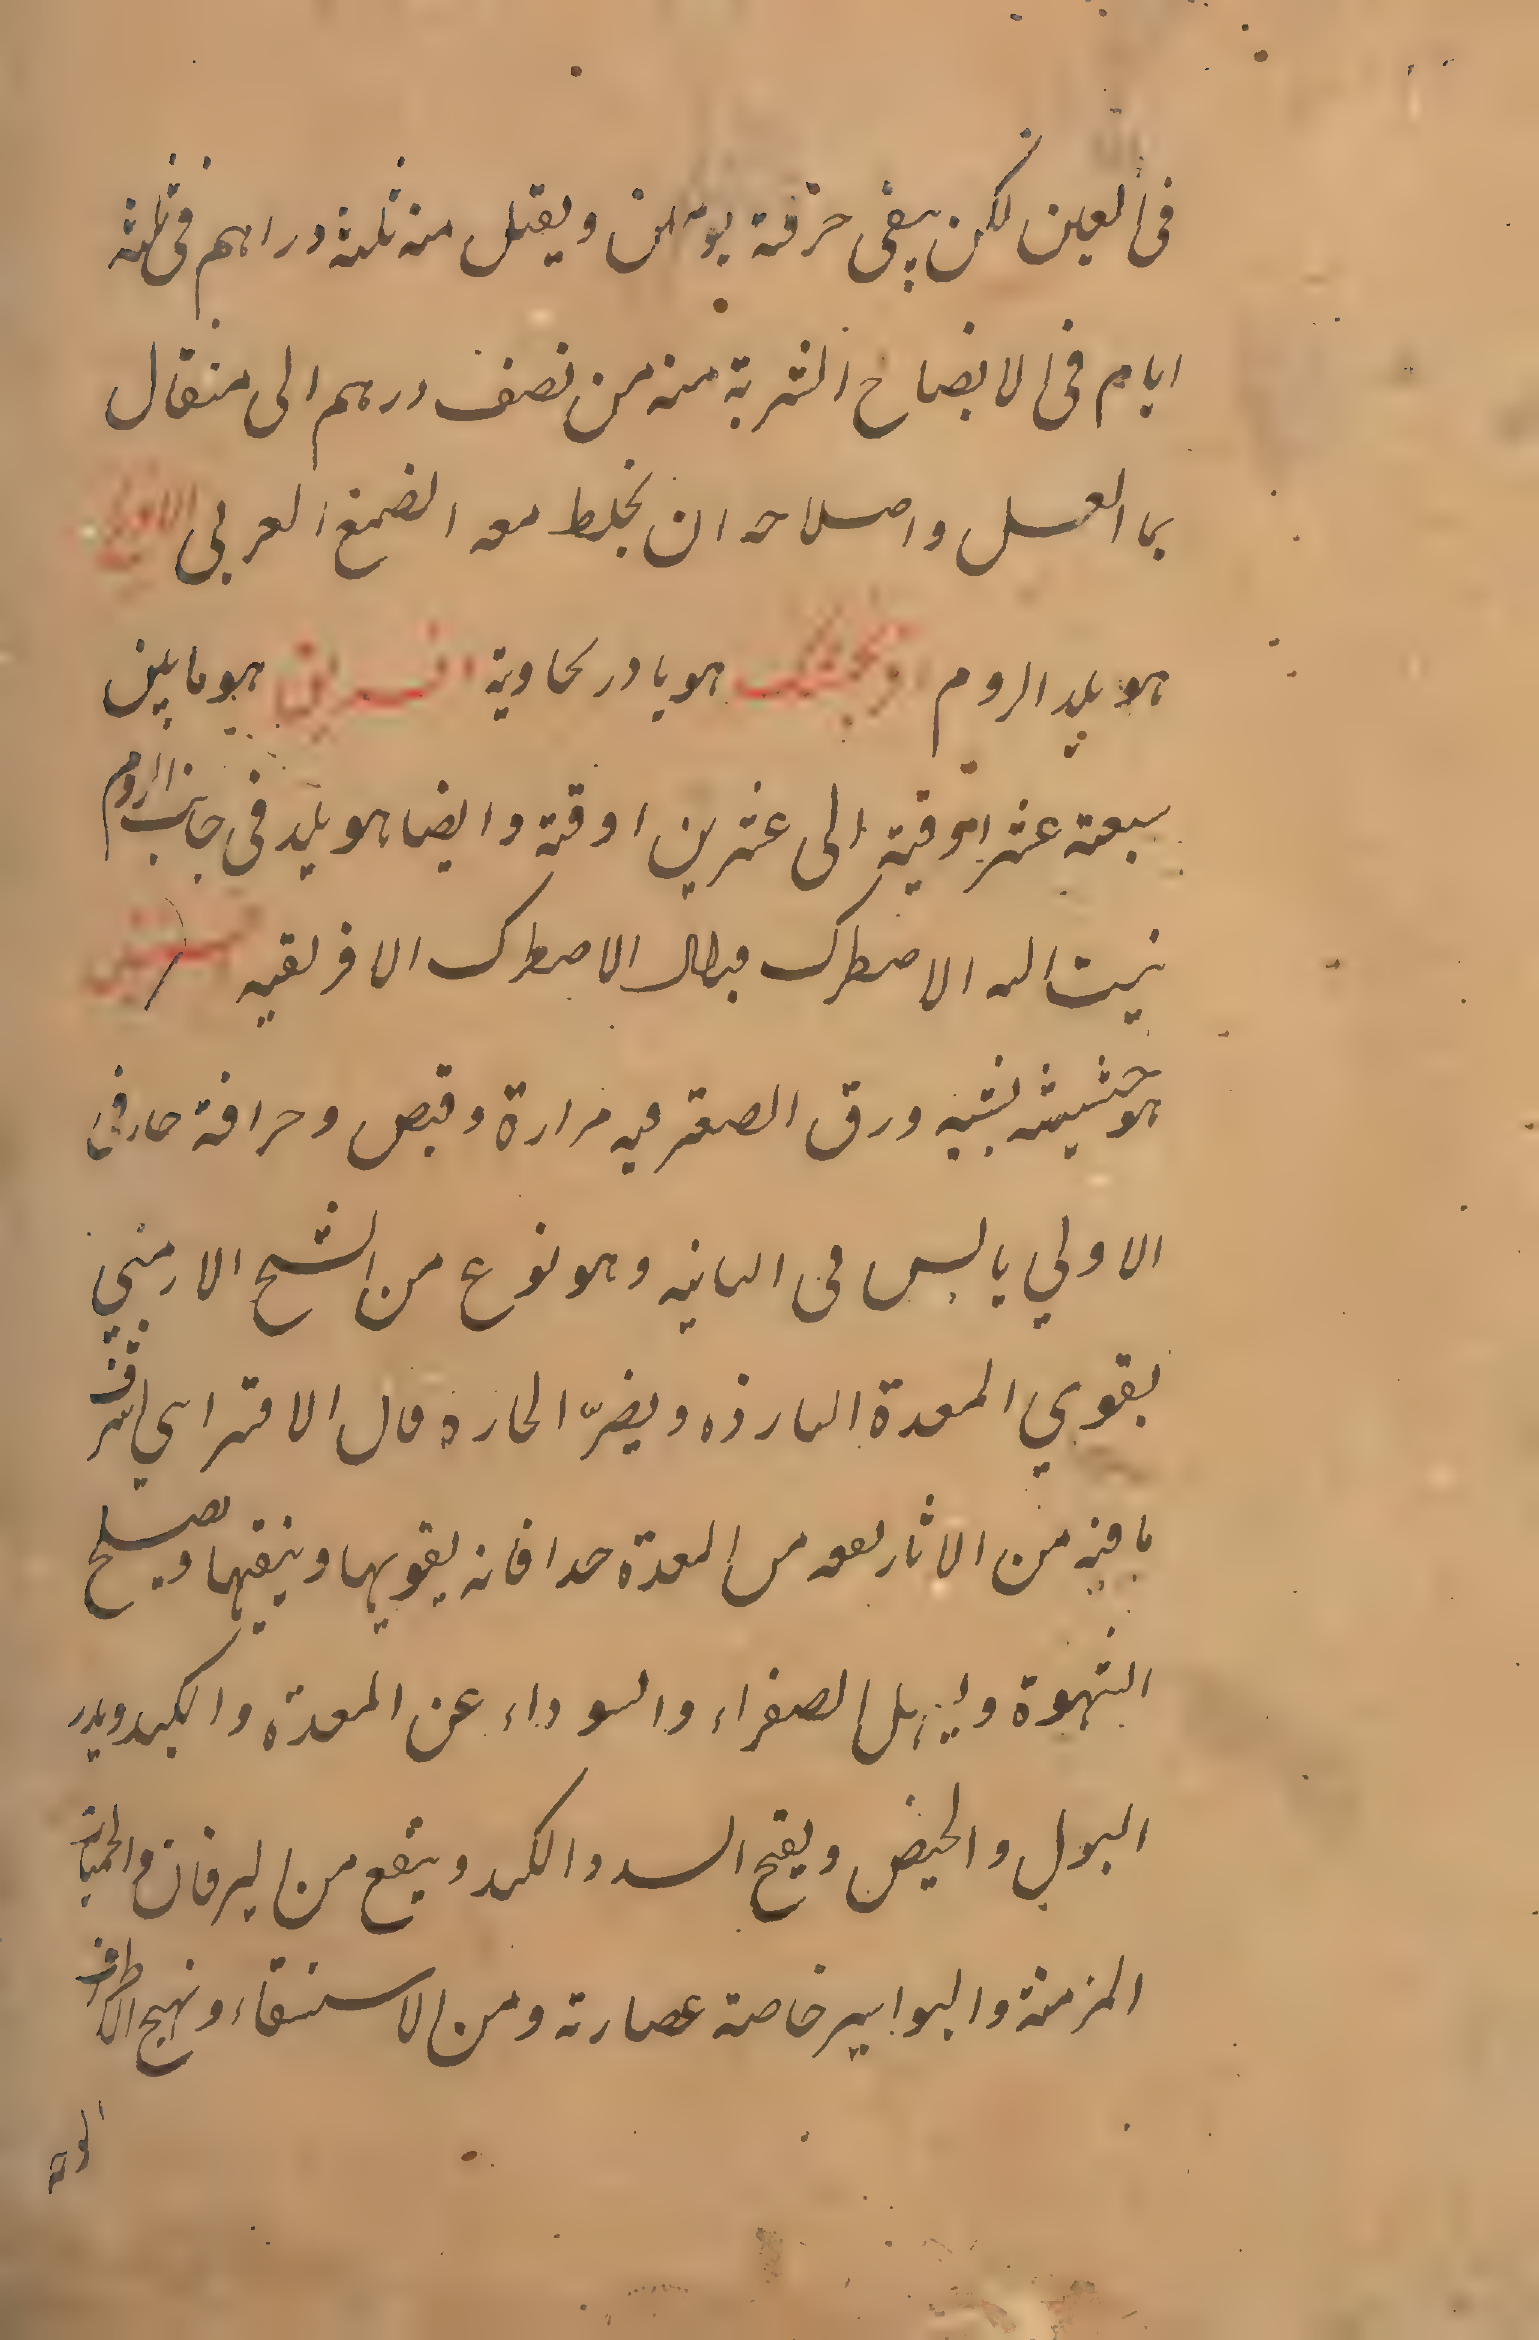 في العين لكن يبقي حرقة يومين ويقتل منه ثلثة دراهم في ثلثة
ايام في الايضاح الشربة منه من نصف درهم الى مثقال
بما العسل واصلاحه ان يخلط معه الصمغ العربي
هو بلد الروم هو بادرنحاوية هو ما بين
سبعة عشر اوقية الى عشرين اوقة وايضا هو بلد في جانب الروم
الاصطرك الاصطرك الافريقيه
هو حشيشه يشبه ورق الصعتر فيه مرارة وقبض وحرافة حار في
الاولي يابس في الثانيه وهو نوع من الشيح الارمني
يقوي المعدة الباردة ويضرّ الحاره قال الاقسرايي اشرف
ما فيه من الاثار نفعه من المعدة جدا فانه يقويها وينقيها ويصلح
الشهوة ويسهل الصفراء والسوداء عن المعدة والكبد ويدر
البول والحيض ويفتح السدد الكبد وينفع من اليرقان والحميات
المزمنة والبواسير خاصة عصارته ومن الاستسقاء وتهيج الاطراف